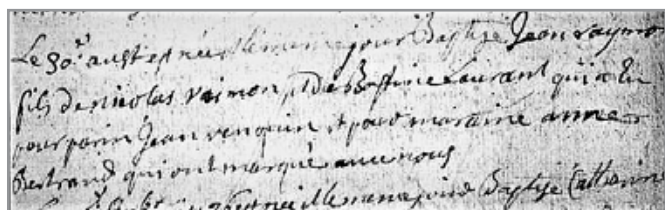 Le 30e aust est né et le meme jour Baptizé Jean raymo
fils de nicolas raimon et de Bastine Laurant qui a Eu
pour parin Jean venquin et pour maraine anne
Bertrand qui ont marqué avec nous
est né et le meme jour Baptizé Catherine